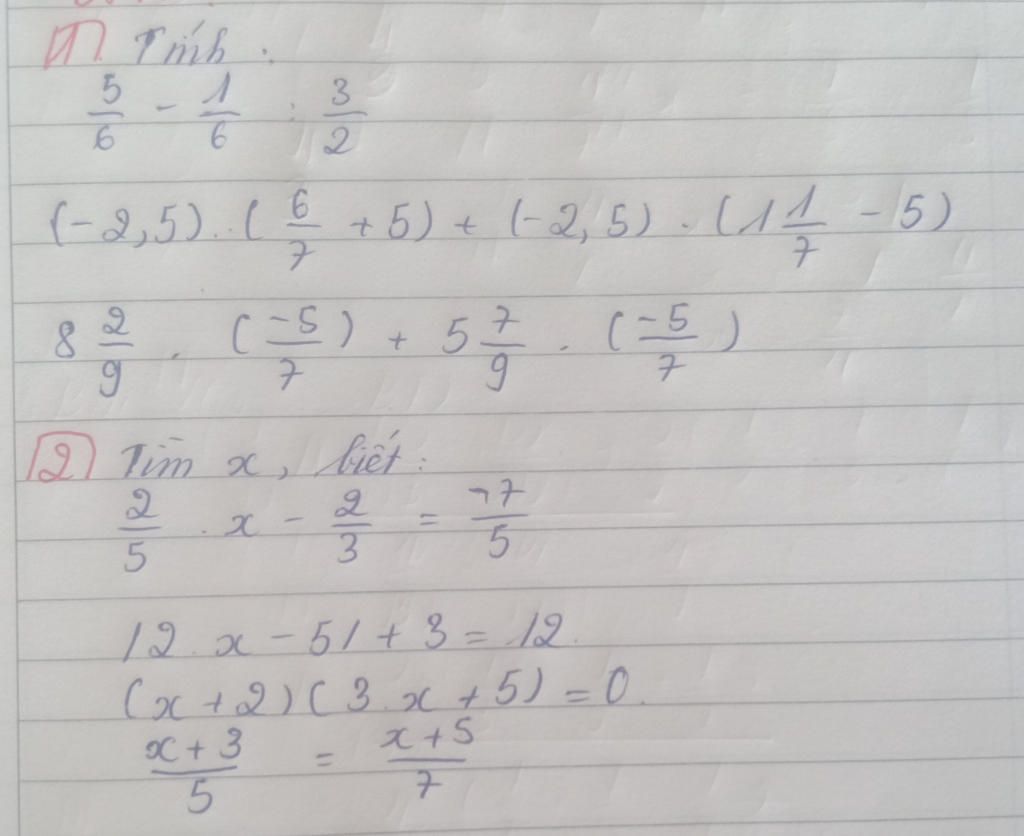 1 Tính :
5/6 - 1/6 : 3/2
(-2,5) . (6/7 + 5) + (-2,5) . (1 1/7 - 5)
8 2/9 . (-5/7) + 5 7/9 . (-5/7)
2 Tìm x, biết :
2/5 . x - 2/3 = -7/5
|2.x - 5| + 3 = 12.
(x + 2)(3.x + 5) = 0.
x+3/5 = x+5/7